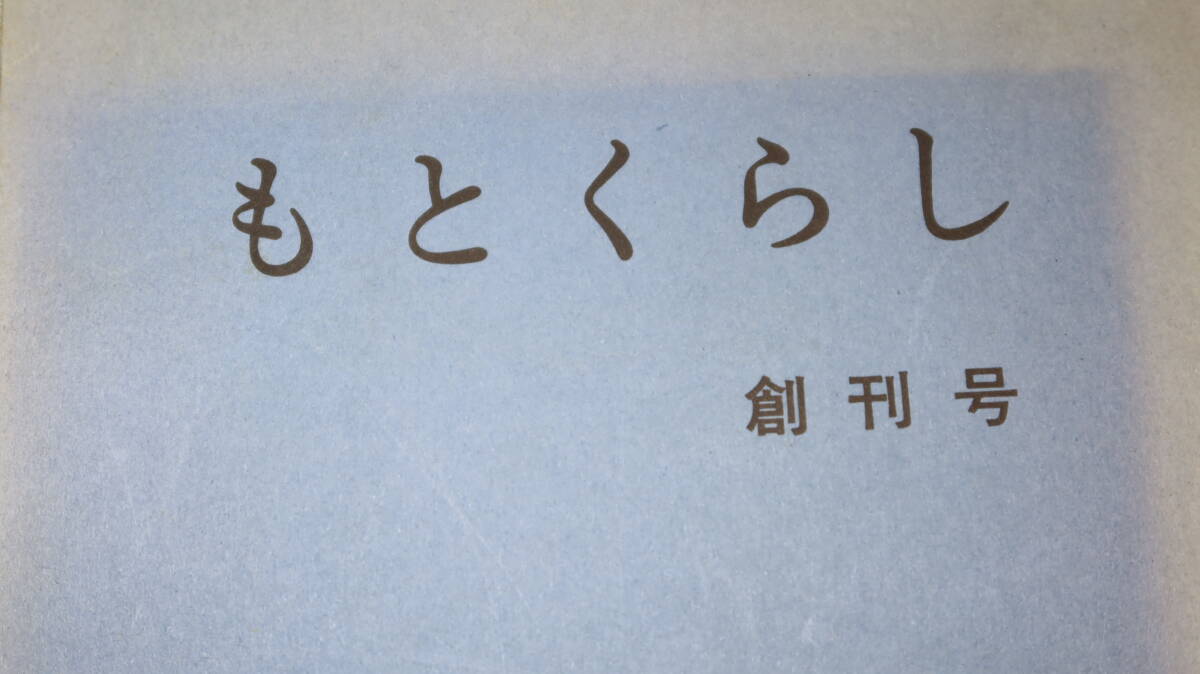 もとくらし
創刊号